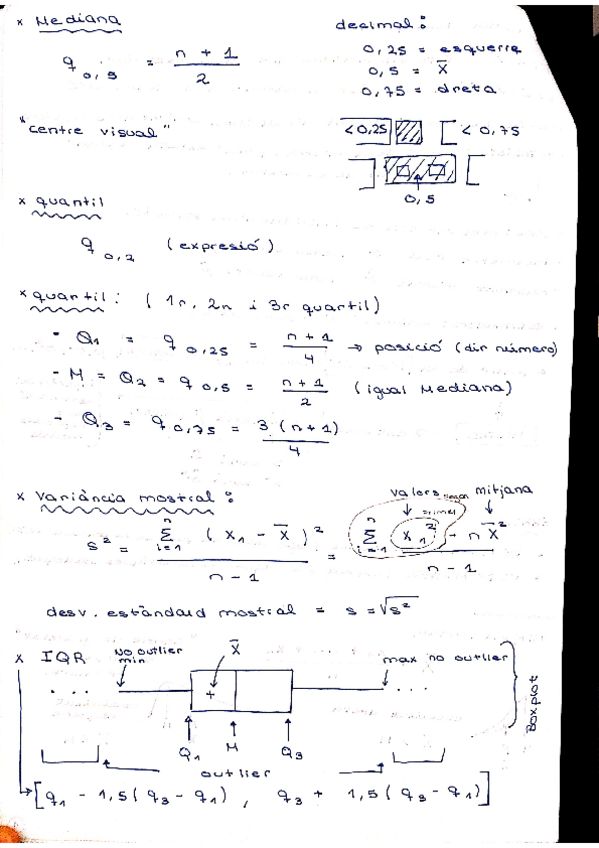 * Mediana
q 0,5 = n + 1 / 2
decimal:
0,25 = esquerra
0,5 = X̄
0,75 = dreta
"centre visual"
< 0,25 [ < 0,75
0,5
* quantil
q 0,2 (expressió)
* quartil: ( 1r, 2n i 3r quartil)
- Q1 = q 0,25 = n + 1 / 4 → posició (dir número)
- M = Q2 = q 0,5 = n + 1 / 2 (igual Mediana)
- Q3 = q 0,75 = 3 (n + 1) / 4
* Variància mostral:
valors mitjana
primer
s² = Σ i=1 n ( x1 - X̄ )² / n - 1 = Σ i=1 n x1² - n X̄² / n - 1
desv. estàndard mostral = s = √s²
* IQR
No outlier min
X̄
max no outlier
Boxplot
Q1 M Q3
outlier
[ q1 - 1,5 ( q3 - q1 ) , q3 + 1,5 ( q3 - q1 ) ]